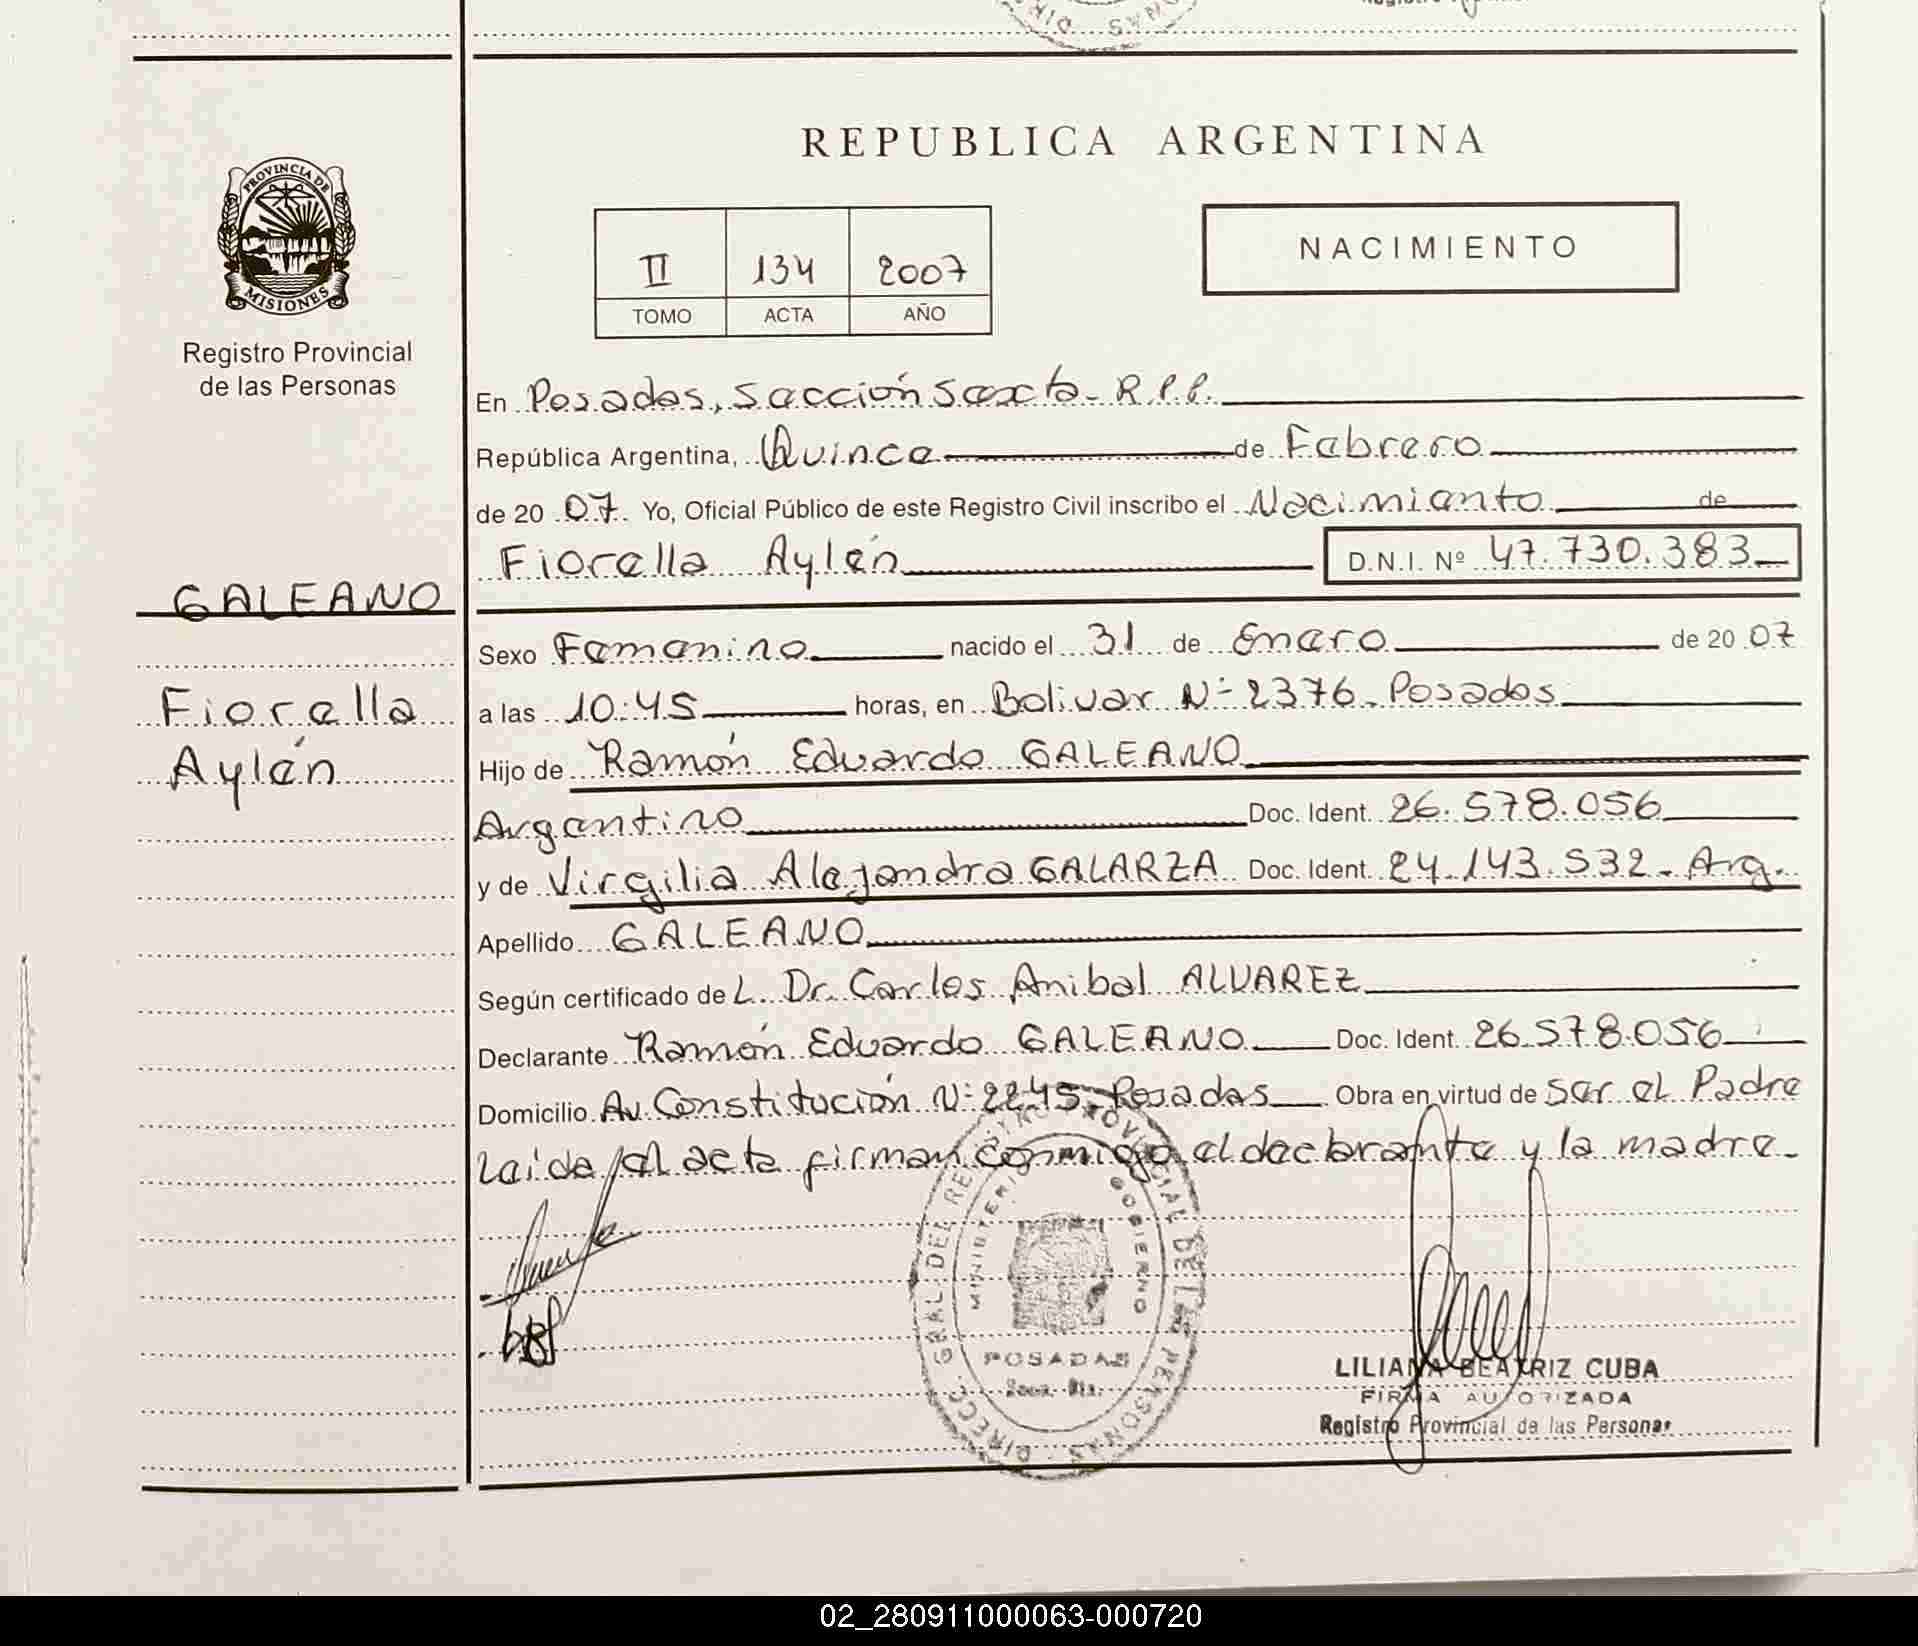 REPUBLICA ARGENTINA
PROVINCIA DE
MISIONES
Registro Provincial
de las Personas
II 134 2007
TOMO ACTA AÑO
NACIMIENTO
En Posadas, Sección Sexta - R.P.P.
República Argentina, Quince de Febrero
de 20 07 Yo, Oficial Público de este Registro Civil inscribo el Nacimiento de
Fiorella Aylén D.N.I. Nº 47.730.383
GALEANO
Fiorella
Aylén
Sexo Femenino nacido el 31 de Enero de 20 07
a las 10:45 horas, en Bolivar Nº 2376 - Posadas
Hijo de Ramón Eduardo GALEANO
Argentino Doc. Ident. 26.578.056
y de Virgilia Alejandra GALARZA Doc. Ident. 24.143.532 - Arg.
Apellido GALEANO
Según certificado de L. Dr. Carlos Anibal ALVAREZ
Declarante Ramón Eduardo GALEANO Doc. Ident. 26.578.056
Domicilio Av. Constitución Nº 2245 - Posadas Obra en virtud de ser el Padre
Leída el acta firman conmigo el declarante y la madre -
DIRECC. GRAL DEL REGISTRO PROVINCIAL DE LAS PERSONAS
MINISTERIO GOBIERNO
POSADAS
LILIANA BEATRIZ CUBA
FIRMA AUTORIZADA
Registro Provincial de las Personas
02_280911000063-000720